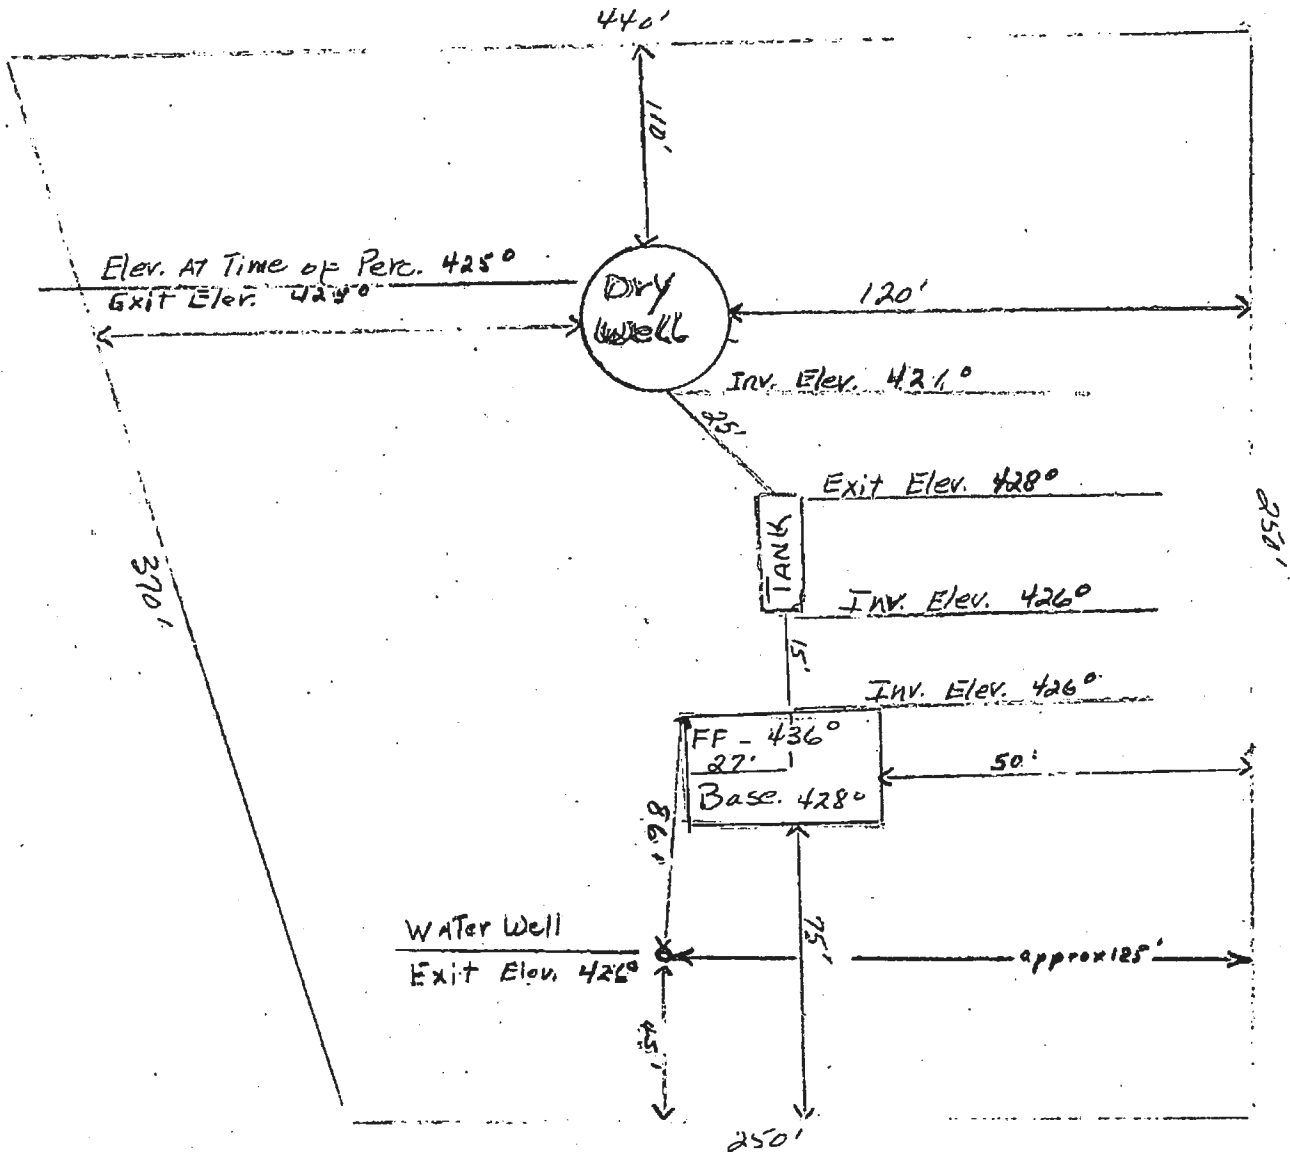 440'
110'
Elev. AT Time of Perc. 425°
Exit Elev.
Dry
Well
120'
Inv. Elev.
25'
Exit Elev. 428°
250'
TANK
Inv. Elev. 426°
370'
15'
Inv. Elev. 426°
FF - 436°
27'
Base. 428°
50'
86'
Water Well
Exit Elev. 426°
75'
approx 125'
45'
250'